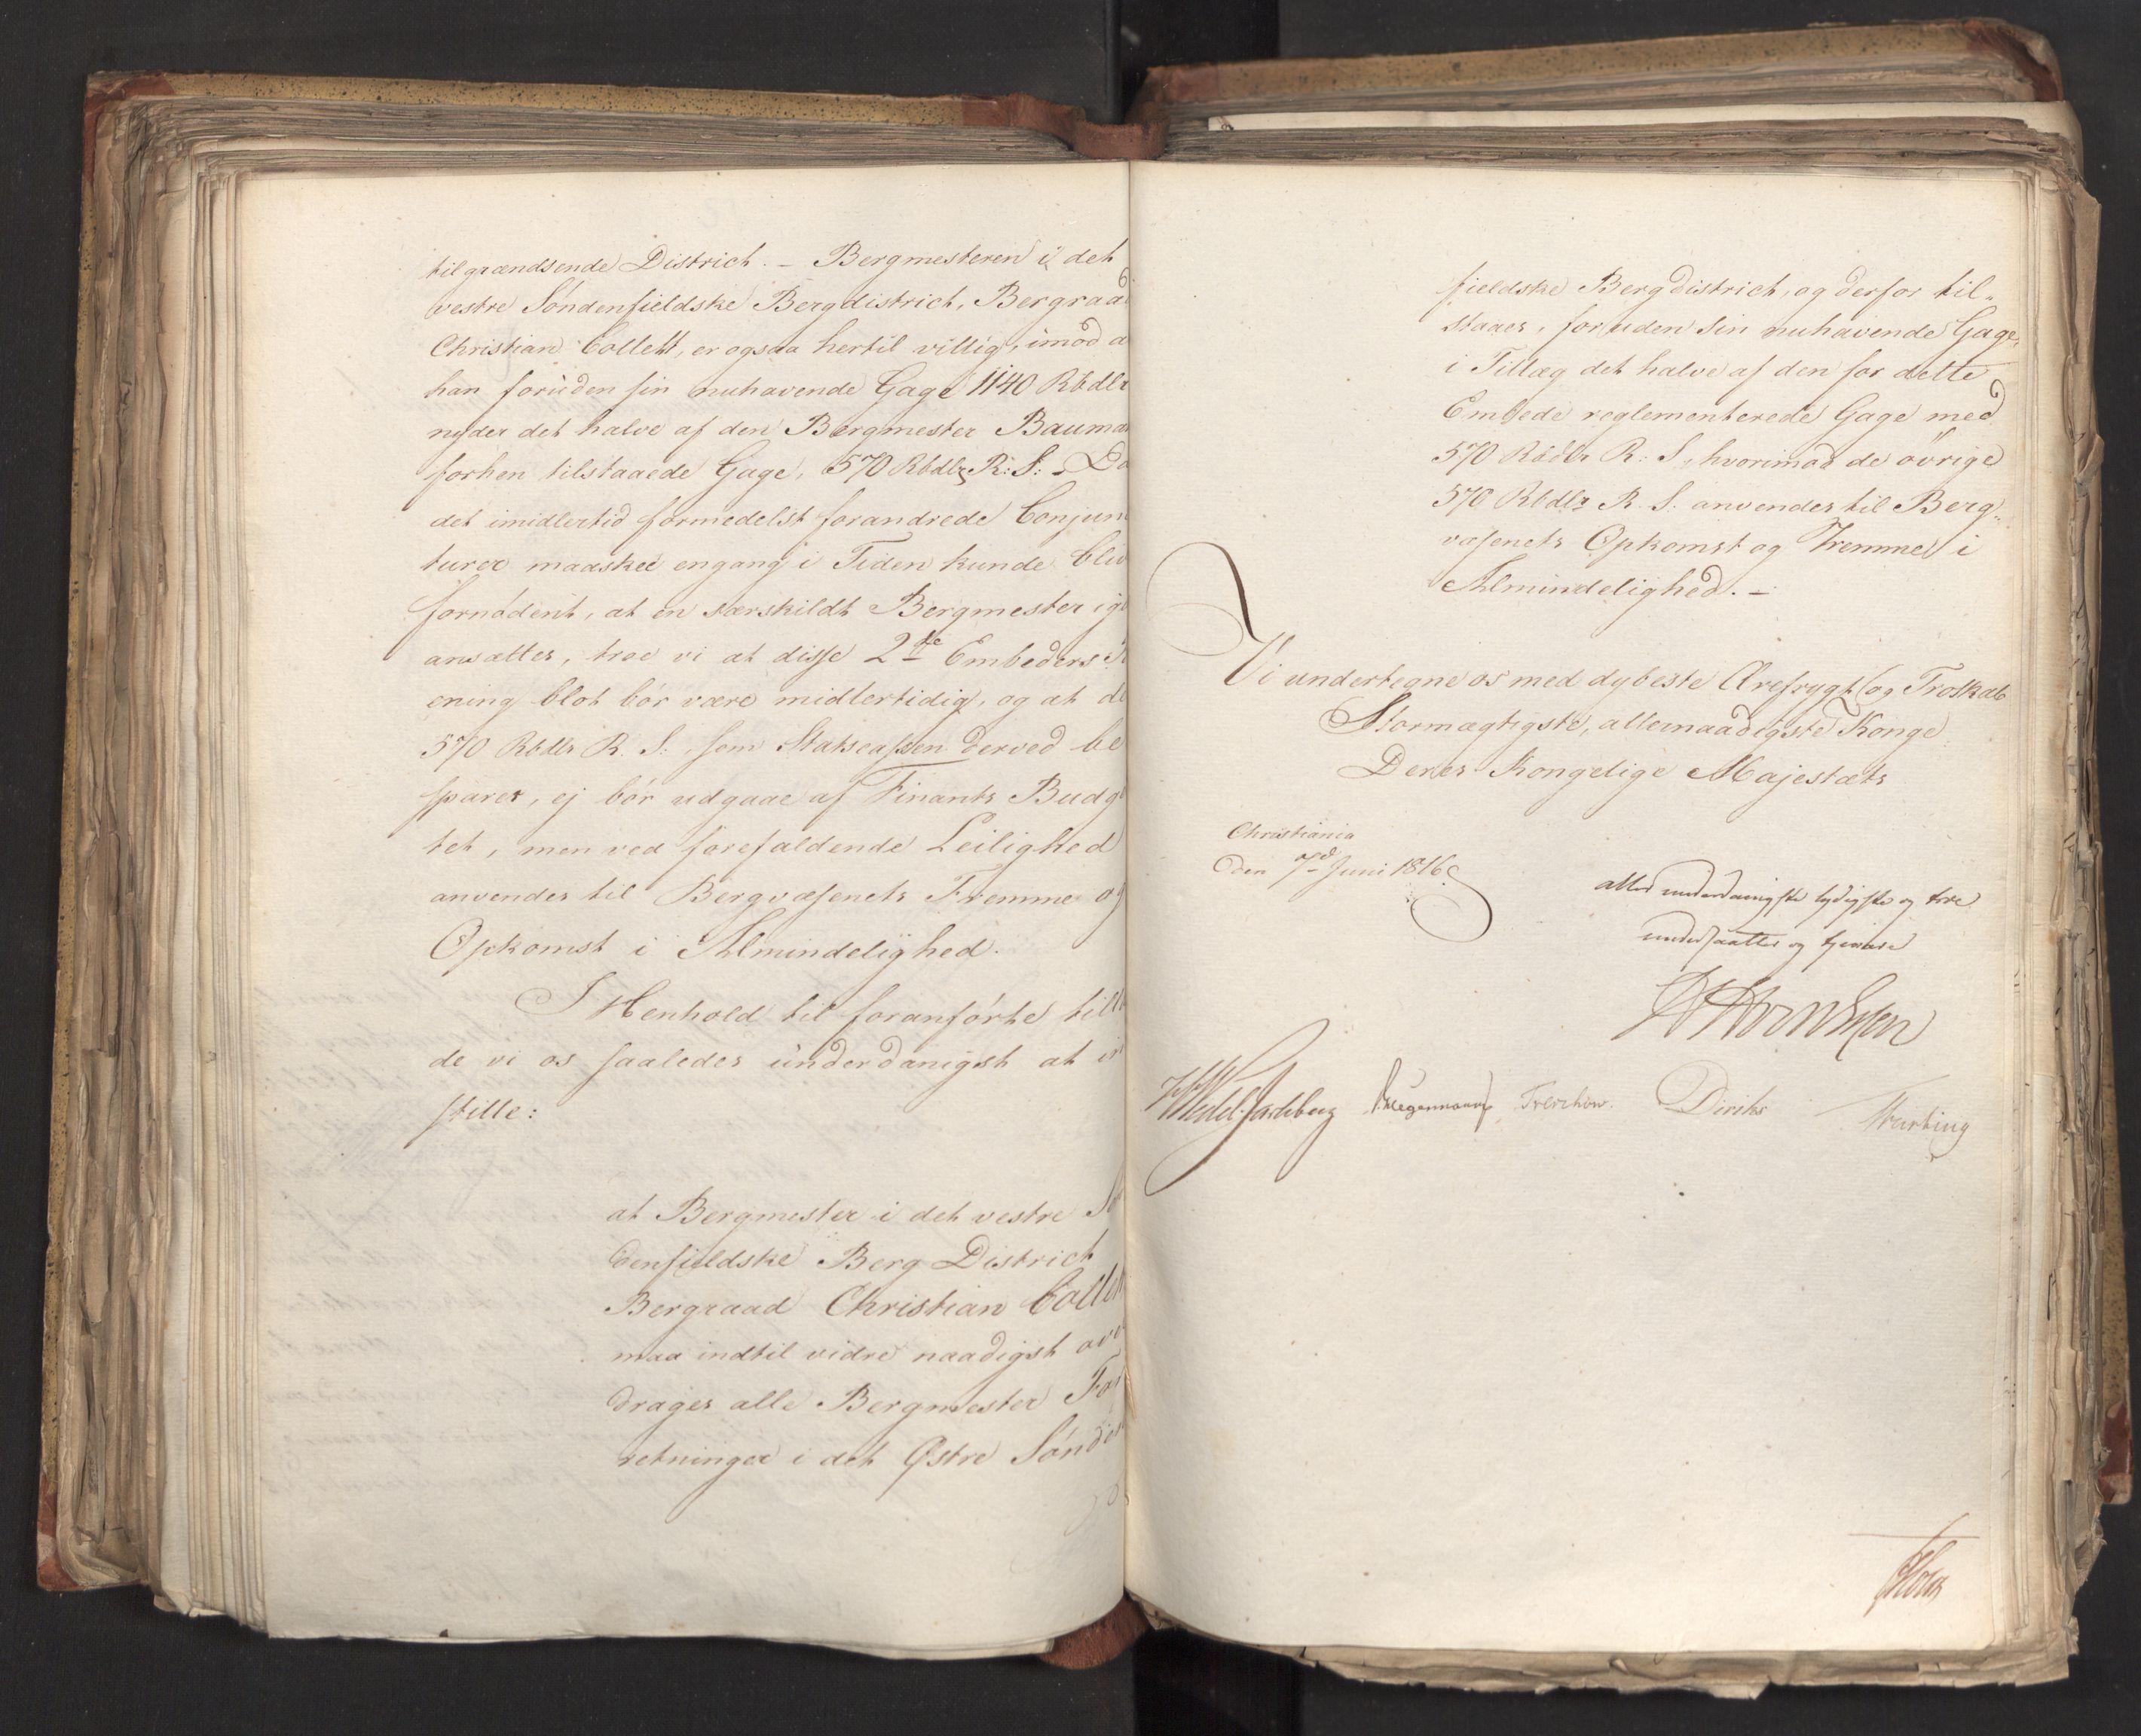 tilgrændsende District. – Bergmesteren i det
vestre Søndenfieldske Bergdistrict, Bergraad
Christian Collett, er ogsaa hertil villig, imod a
han foruden sin nuhavende Gage 1140 Rbdlr
nyder det halve af den Bergmester Bauma
forhen tilstaaede Gage, 570 Rbdlr R: S: – Da
det imidlertid formedelst forandrede Conjun
turer maaskee engang i Tiden kunde bliv
fornødent, at en særskildt Bergmester ige
ansættes, troe vi at disse 2de Embeders
ening blot bør være midlertidig, og at de
570 Rbdlr R. S:, som Statscassen derved be
sparer, ej bør udgaae af Finants Budge
tet, men ved forefaldende Leilighed
anvendes til Bergvæsenets Fremme og
Opkomst i Almindelighed.
I Henhold til foranførte till
de vi os saaledes underdanigst at in
stille:
at Bergmester i det vestre Sø
denfieldske Berg District
Bergraad Christian Collett
maa indtil vidre naadigst ove
drages alle Bergmester For
retninger i det Østre Sønden
fieldske Bergdistrict, og derfor til„
staaes, foruden sin nuhavende Gage,
i Tillæg det halve af den for dette
Embede reglementerede Gage med
570 Rbdlr R: S, hvorimod de øvrige
570 Rbdlr R. S: anvendes til Berg„
væsenets Opkomst og Fremme i
Almindelighed. –
Vi undertegne os med dybeste Ærefrygt og Troskab
Stormægtigste, allernaadigste Konge
Deres Kongelige Majestæts
Christiania
den 7d Juni 1816.
allerunderdanigste lydigste og troe
undersaatter og tjenere
Wedel Jarlsberg Hegermann Treschow. Diriks